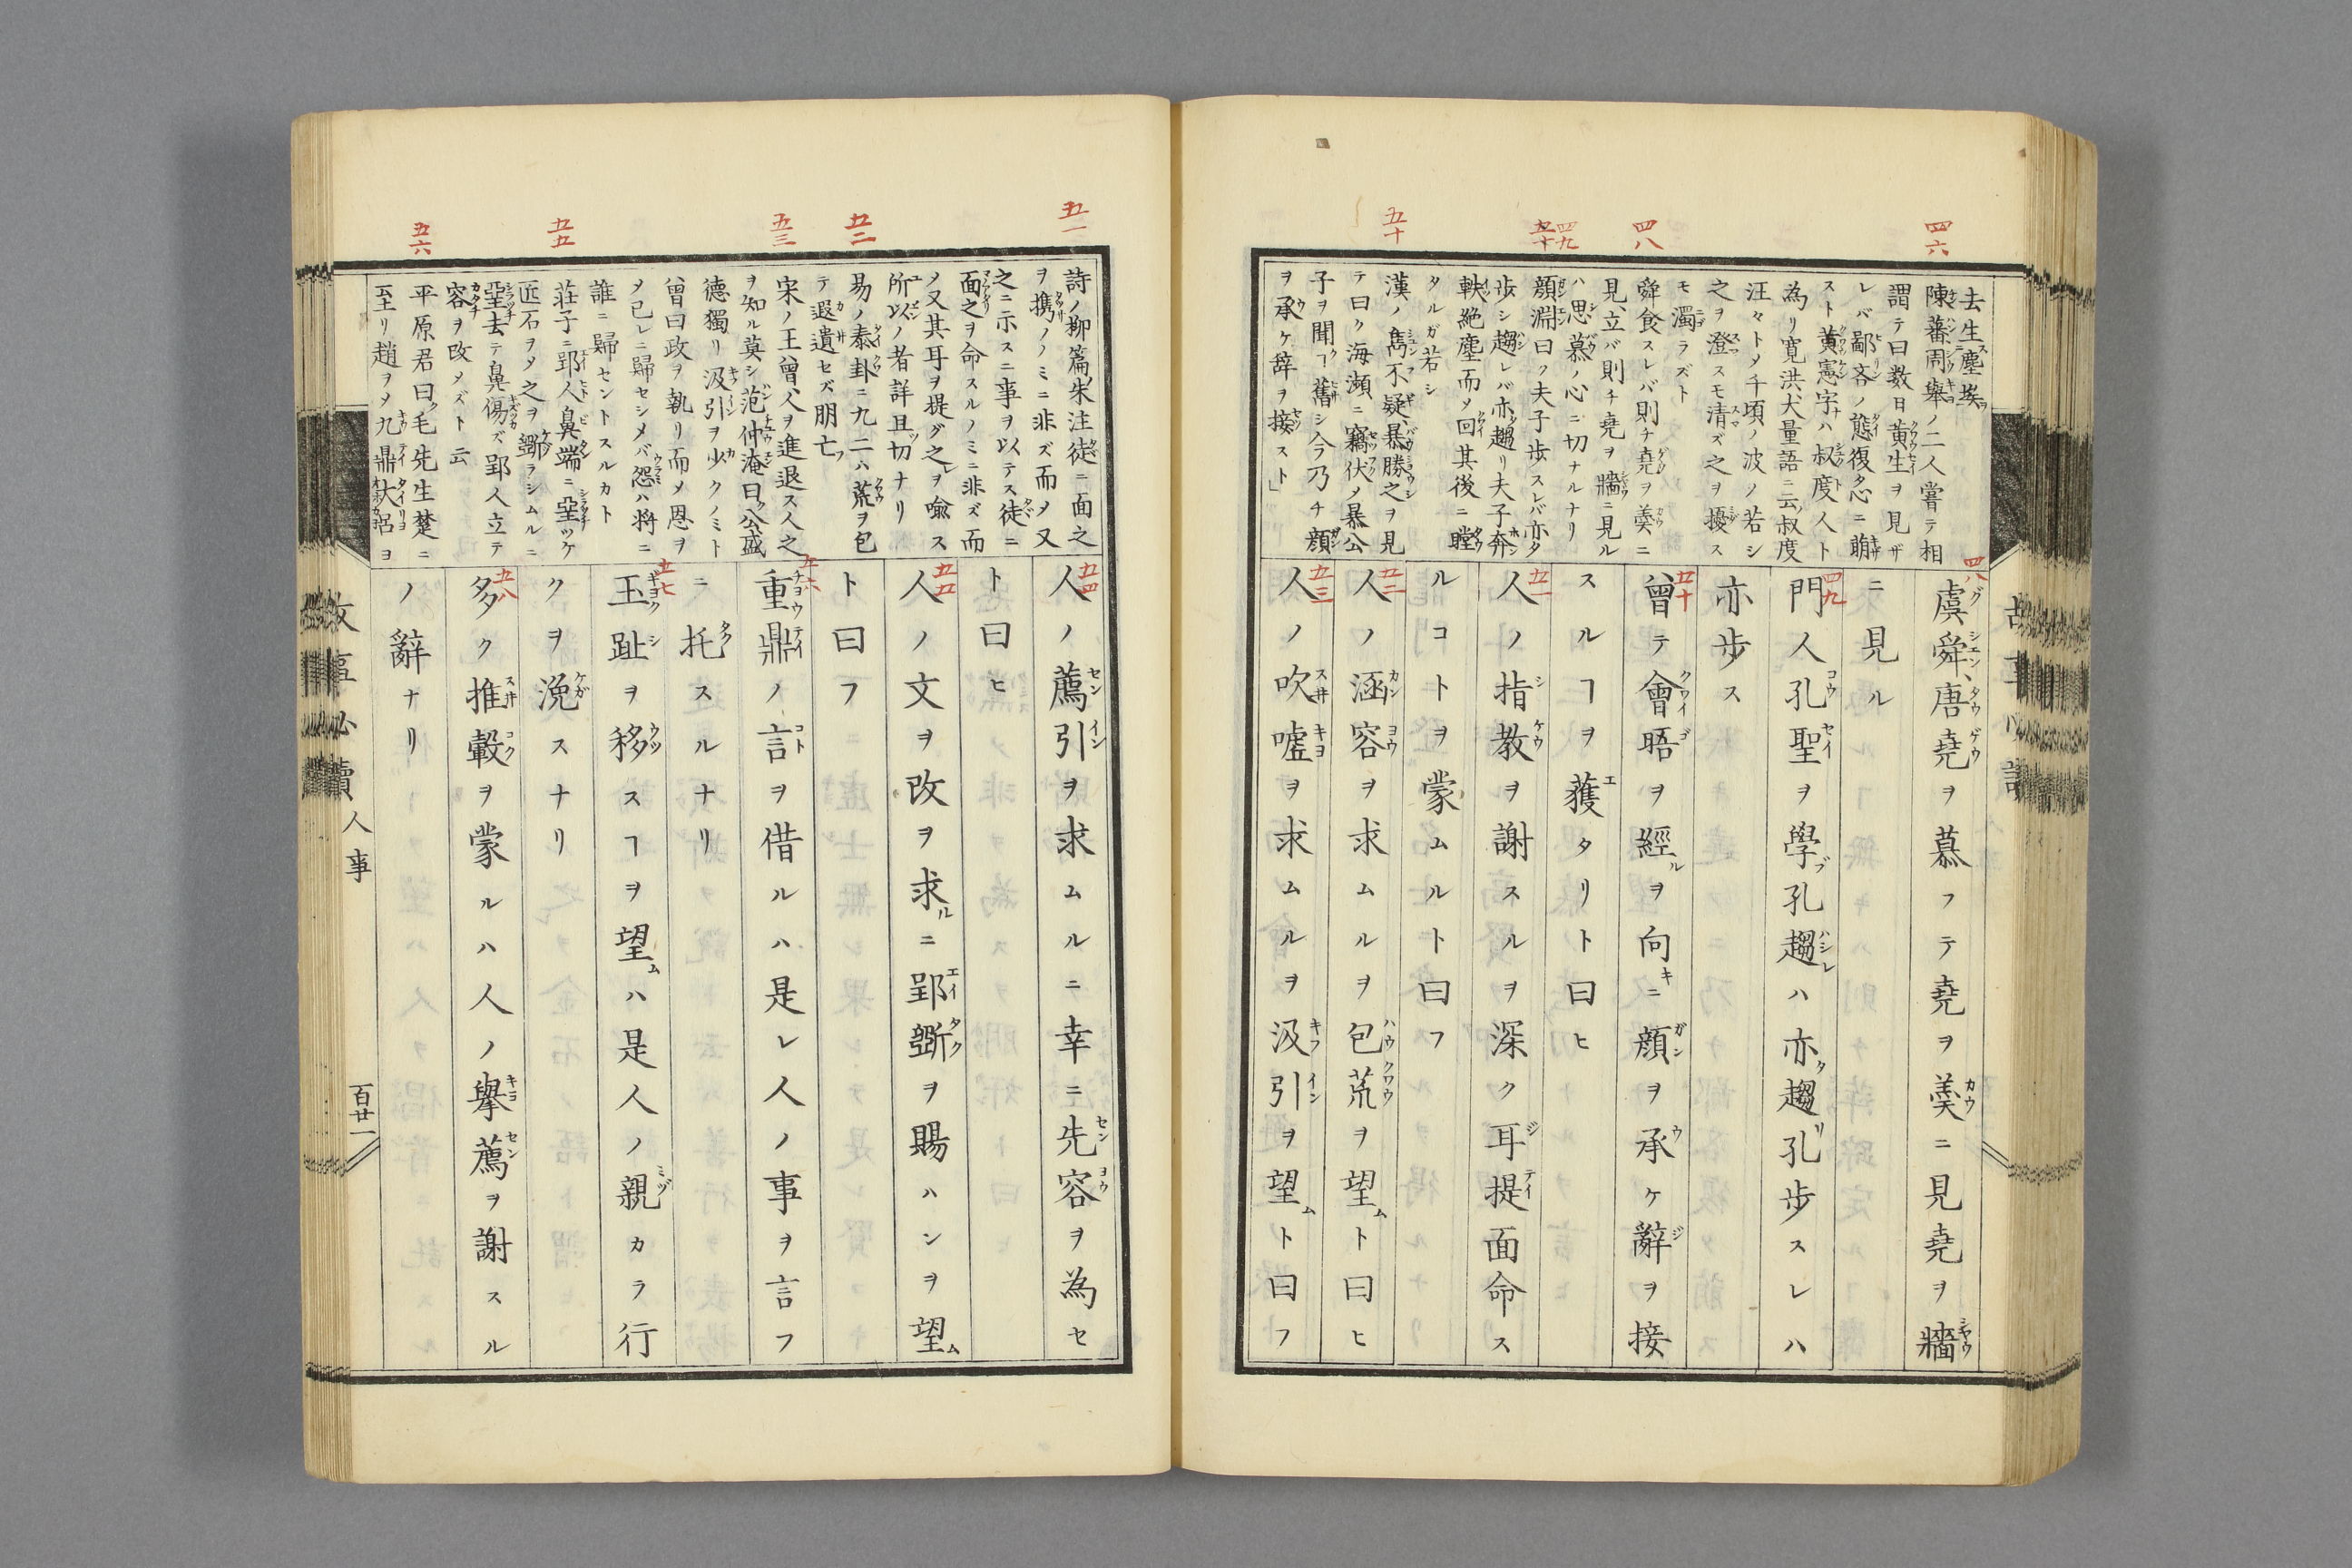 四六
四八
四九
五十
五十
去生塵埃
陳蕃周舉ノ二人嘗テ相
謂テ曰数日黄生ヲ見ザ
レバ鄙吝ノ態復タ心ニ萠
スト黄憲字ハ叔度人ト
為リ寛洪大量語ニ云叔度
汪々トメ千頃ノ波ノ若シ
之ヲ澄スモ清ズ之ヲ擾ス
モ濁ラズト
舜食スレバ則チ堯ヲ羮ニ
見、立バ則チ堯ヲ牆ニ見ル
ハ思慕ノ心ニ切ナルナリ
顔淵曰ク夫子歩スレバ亦タ
歩シ趨レバ亦趨リ夫子奔
軼絶塵而メ回其後ニ瞠
タルガ若シ
漢ノ雋不疑、暴勝之ヲ見
テ曰ク海瀕ニ竊伏メ暴公
子ヲ聞ヿ舊シ今乃チ顔
ヲ承ケ辞ヲ接スト」
四八
虞舜、唐堯ヲ慕フテ堯ヲ羮ニ見堯ヲ牆
ニ見ル
四九
門人孔聖ヲ學ブ孔趨ハ亦タ趨リ孔歩スレハ
亦歩ス
五十
曾テ會晤ヲ經ルヲ向キニ顔ヲ承ケ辭ヲ接
スルヿヲ獲タリト曰ヒ
五一
人ノ指教ヲ謝スルヲ深ク耳提面命ス
ルコトヲ蒙ムルト曰フ
五二
人ノ涵容ヲ求ムルヲ包荒ヲ望ムト曰ヒ
五三
人ノ吹噓ヲ求ムルヲ汲引ヲ望ムト曰フ
五一
五二
五三
五五
五六
詩ノ抑篇朱注徒ニ面之
ヲ携ノノミニ非ズ而メ又
之ニ示スニ事ヲ以テス徒ニ
面之ヲ命スルノミニ非ズ而
メ又其耳ヲ提グ之ヲ喩ス
所以ノ者詳且切ナリ
易ノ泰卦ニ九二ハ荒ヲ包
テ遐遺セズ朋亡
宋ノ王曾、人ヲ進退ス人之
ヲ知ル莫シ范仲淹曰ク公盛
德獨リ汲引ヲ少クノミト
曾曰政ヲ執リ而メ恩ヲ
メ已レニ歸セシメバ怨ハ将ニ
誰ニ歸セントスルカト
荘子ニ郢人鼻端ニ堊ツケ
匠石ヲメ之ヲ斵ラシムルニ
堊去テ鼻傷ズ郢人立テ
容ヲ改メズト云
平原君曰ク毛先生楚ニ
至リ趙ヲメ九鼎大呂ヨ
五四
人ノ薦引ヲ求ムルニ幸ニ先容ヲ為セ
ト曰ヒ
五五
人ノ文ヲ改ヲ求ルニ郢斵ヲ賜ハンヲ望ム
ト曰フ
五六
重鼎ノ言ヲ借ルハ是レ人ノ事ヲ言フ
ニ托スルナリ
五七
玉趾ヲ移スヿヲ望ムハ是人ノ親カラ行
クヲ浼スナリ
五八
多ク推轂ヲ蒙ルハ人ノ擧薦ヲ謝スル
ノ辭ナリ
故事必讀 人事 百廿一